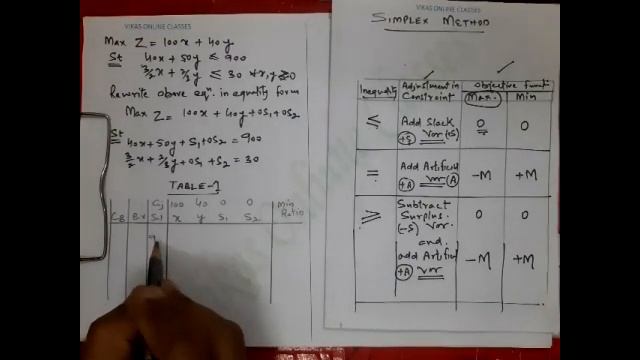 VIKAS ONLINE CLASSES
Max Z = 100x + 40y
St 40x + 50y ≤ 900
3/2x + 2/3y ≤ 30 x,y ≥ 0
Rewrite above eqn. in equality form
Max Z = 100x + 40y + 0S1 + 0S2
St
40x + 50y + S1 + 0S2 = 900
3/2x + 2/3y + 0S1 + S2 = 30
TABLE-1
Cj 100 40 0 0 Min
CB B.V x y S1 S2 Ratio
VIKAS ONLINE CLASSES
SIMPLEX METHOD
Inequality Adjustment in Constraint Objective Functi
Max. Min
≤ Add Slack (+S) Var (+S) 0 0
= Add Artificial (+A) Var (A) -M +M
≥ Subtract Surplus (-S) Var. 0 0
and
add Artificial (+A) Var -M +M